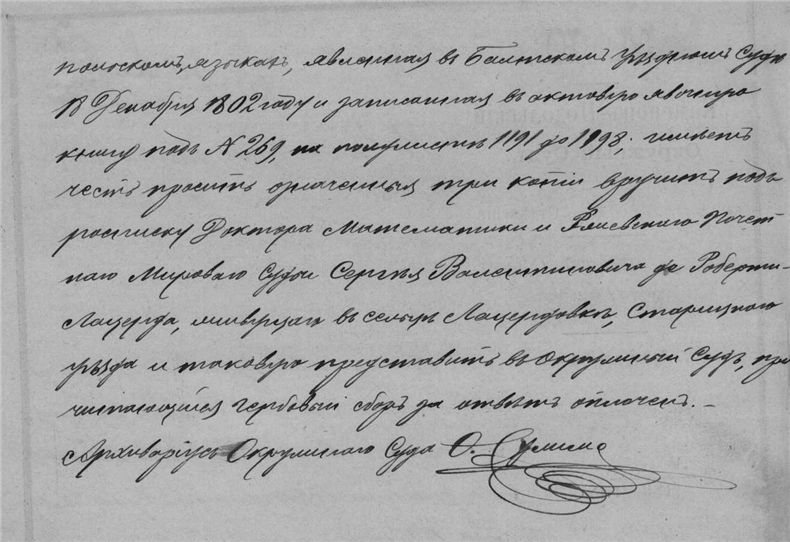 польскомъ языкахъ, явленная въ Балтскомъ Уѣздномъ Судѣ
18 Декабря 1802 году и записанная въ актовую явочную
книгу подъ N 269, на полулистѣ 1191 до 1198; имѣетъ
честь просить означенныя три копіи вручить подъ
росписку Доктора Математики и Ряжскаго Почет
наго Мироваго Судьи Сергѣя Валентиновича де Роберти-
Лацерда, живущаго въ сельцѣ Лацердовкѣ, Старицкаго
уѣзда и таковую представить въ Окружный Судъ, при
читающійся гербовый сборъ за отвѣтъ оплаченъ. –
Архиваріусъ Окружнаго Суда Ѳ. Сулима